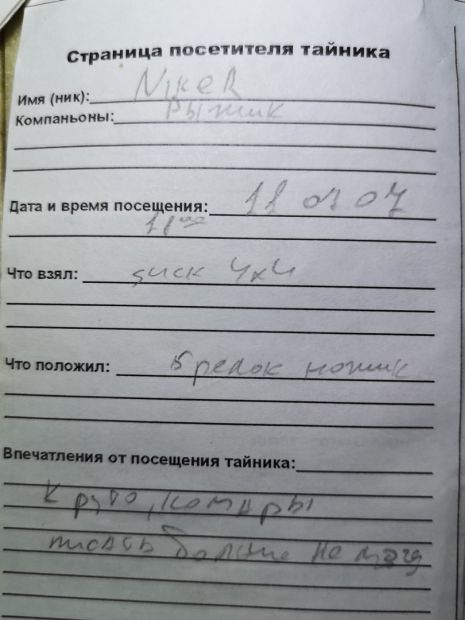 Страница посетителя тайника
Имя (ник): NikeR
Компаньоны: Рыжик
Дата и время посещения: 11 07 07
18 00
Что взял: диск 4x4
Что положил: брелок ножик
Впечатления от посещения тайника:
Круто, комары
писать больше не могу